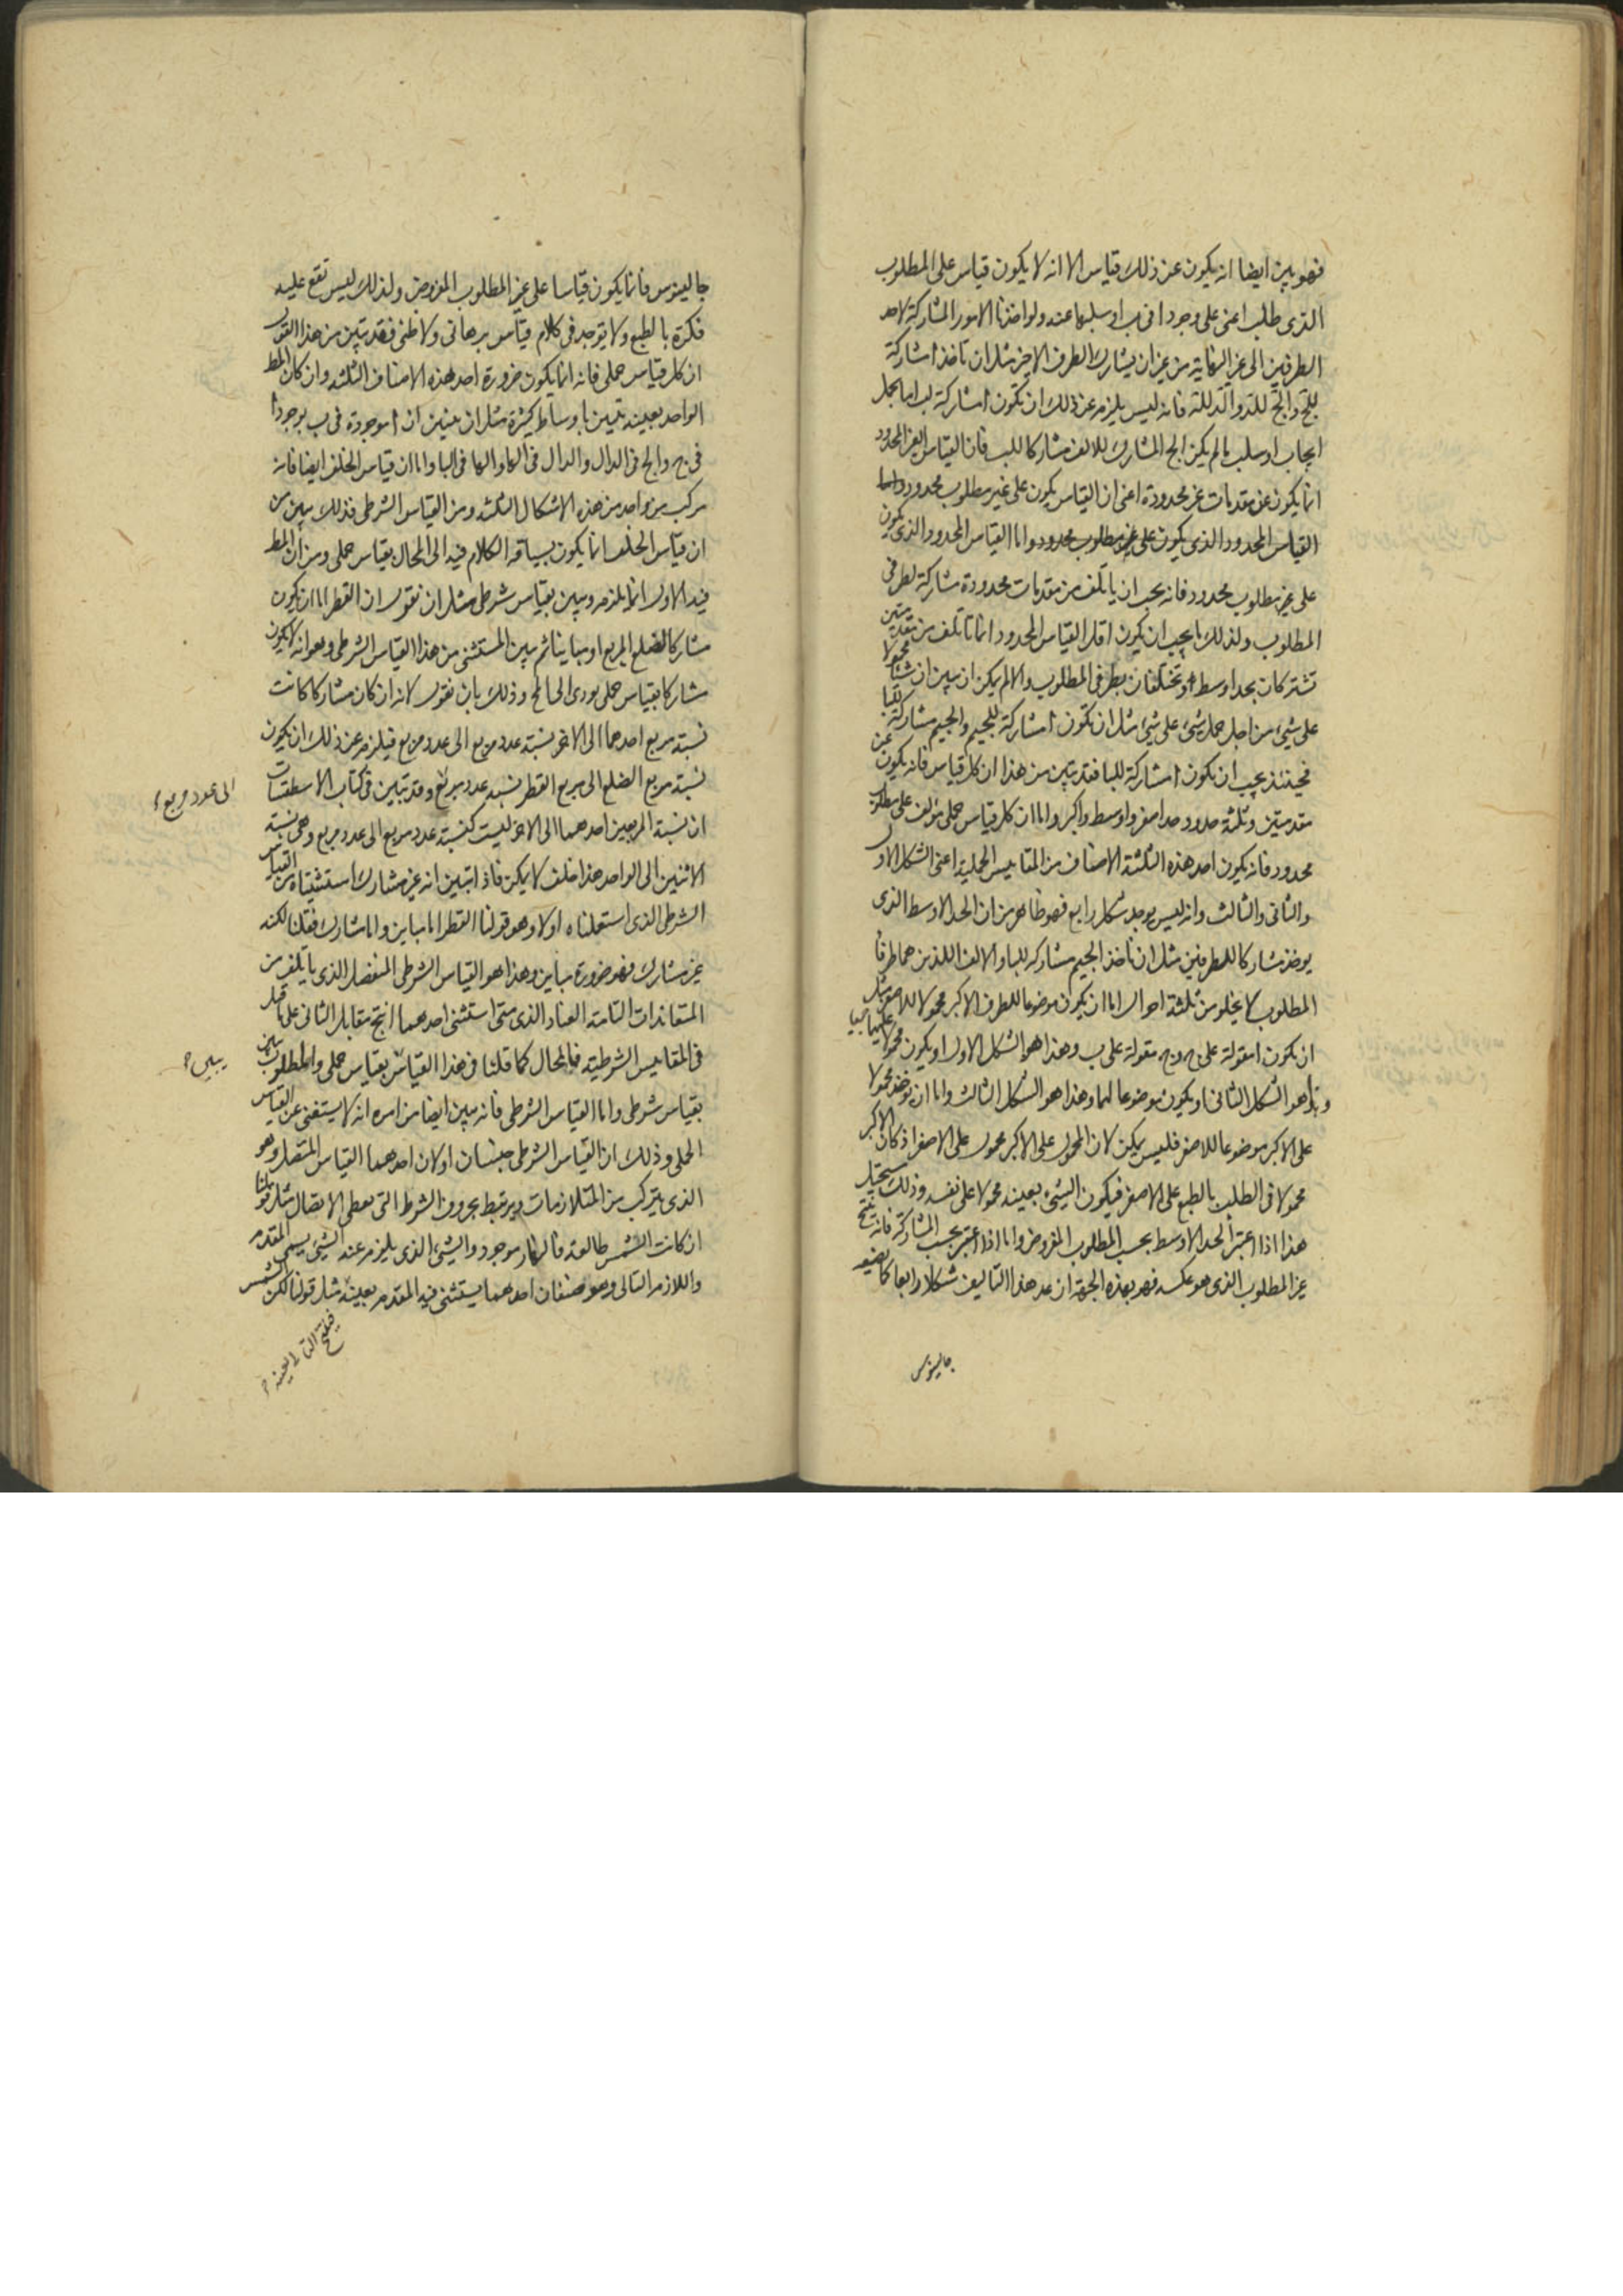 فهو بين ايضا انه يكون عن ذلك قياس الا انه لا يكون قياس على المطلوب
الذى طلب اعنى على وجود ا فى ب او سلبها عنه ولو اخذنا الامور المشاركة لاحد
الطرفين الى غير النهاية من غير ان يشارك الطرف الاخر مثل ان تاخذ ا مشاركة
للج والج للد والد للة فانه ليس يلزم عن ذلك ان تكون ا مشاركة لب اما بحمل
ايجاب او سلب ما لم يكن الج المشارك للالف مشاركا للب فان القياس الغير المحدود
انما يكون عن مقدمات غير محدودة اعنى ان القياس يكون على غير مطلوب محدود واما
القياس المحدود الذى يكون على غير مطلوب محدود واما القياس المحدود الذى يكون
على غير مطلوب محدود فانه يجب ان ياتلف من مقدمات محدودة مشاركة لطرفى
المطلوب ولذلك ما يجب ان يكون اقل القياس المحدود انما تاتلف من مقدمتين
تشتركان بحد اوسط وتختلفان بطرفى المطلوب والا لم يكن ان يبين ان شيئا محمولا
على شىء من اجل حمل شىء على شىء مثل ان تكون ا مشاركة للجيم والجيم مشاركة للبا
فحينئذ يجب ان تكون ا مشاركة للبا فقد تبين من هذا ان كل قياس فانه يكون عن
مقدمتين وثلثة حدود حد اصغر واوسط واكبر واما ان كل قياس حملى مؤلف على مطلوب
محدود فانه يكون احد هذه الثلثة الاصناف من المقاييس الحملية اعنى الشكل الاول
والثانى والثالث وانه ليس يوجد شكل رابع فهو ظاهر من ان الحد الاوسط الذى
يوخذ مشاركا للطرفين مثل ان تاخذ الجيم مشاركة للبا والالف اللذين هما طرفا
المطلوب لا يخلو من ثلثة احوال اما ان يكون موضوعا للطرف الاكبر محمولا للاصغر مثل
ان تكون ا مقولة على ج و ج مقولة على ب وهذا هو الشكل الاول او يكون محمولا عليهما جميعا
وهذا هو الشكل الثانى او يكون موضوعا لهما وهذا هو الشكل الثالث واما ان يوخذ محمولا
على الاكبر موضوعا للاصغر فليس يمكن لان المحمول على الاكبر محمول على الاصغر اذ كان الاكبر
محمولا فى الطلب بالطبع على الاصغر فيكون الشىء بعينه محمولا على نفسه وذلك مستحيل
هذا اذا اعتبر الحد الاوسط بحسب المطلوب المفروض واما اذا اعتبر بحسب المشاركة فانه ينتج
غير المطلوب الذى هو عكسه فهو بهذه الجهة ان عد هذا التاليف شكلا رابعا كما يضعه
جالينوس
جالينوس فانما يكون قياسا على غير المطلوب المفروض ولذلك ليس تقع عليه
فكرة بالطبع ولا يوجد فى كلام قياس برهانى ولا ظنى فقد تبين من هذا القول
ان كل قياس حملى فانه انما يكون ضرورة احد هذه الاصناف الثلثة وان كان المط
الواحد بعينه تبين باوساط كثيرة مثل ان يبين ان ا موجودة فى ب بوجود ا
فى ج والج فى الدال والدال فى الها والها فى البا واما ان قياس الخلف ايضا فانه
مركب من واحد من هذه الاشكال الثلثة ومن القياس الشرطى فذلك يبين من
ان قياس الخلف انما يكون بسياقه الكلام فيه الى المحال بقياس حملى ومن ان المط
فيه الاول انما يلزم ويبين بقياس شرطى مثل ان نقول ان القطر اما ان يكون
مشاركا لضلع المربع او مباينا ثم يبين المستثنى من هذا القياس الشرطى وهو انه لا يكون
مشاركا بقياس حملى يودى الى المحال وذلك بان نقول لانه ان كان مشاركا كانت
نسبة مربع احدهما الى الاخر نسبة عدد مربع الى عدد مربع فيلزم عن ذلك ان يكون
نسبة مربع الضلع الى مربع القطر نسبة عدد مربع وقد تبين فى كتاب الاسطقسات
الى عدد مربع
ان نسبة المربعين احدهما الى الاخر ليست كنسبة عدد مربع الى عدد مربع وهى نسبة
الاثنين الى الواحد هذا خلف لا يمكن فاذا تبين انه غير مشارك استثنيناه من القياس
الشرطى الذى استعملناه اولا وهو قولنا القطر اما مباين واما مشارك فقلنا لكنه
غير مشارك فهو ضرورة مباين وهذا هو القياس الشرطى المنفصل الذى ياتلف من
المتعاندات التامة العناد الذى متى استثنى احدهما انتج مقابل الثانى على ما قيل
فى المقاييس الشرطية فالمحال كما قلنا فى هذا القياس بقياس حملى والمطلوب يبين
يبين
بقياس شرطى واما القياس الشرطى فانه يبين ايضا من امره انه لا يستغنى عن القياس
الحملى وذلك ان القياس الشرطى جنسان اولان احدهما القياس المتصل وهو
الذى يتركب من المتلازمات ويرتبط بحروف الشرط التى تعطى الاتصال مثل قولنا
ان كانت الشمس طالعة فالنهار موجود والشىء الذى يلزم عنه الشىء يسمى المقدم
واللازم التالى وهو صنفان احدهما يستثنى فيه المقدم بعينه مثل قولنا لكن الشمس